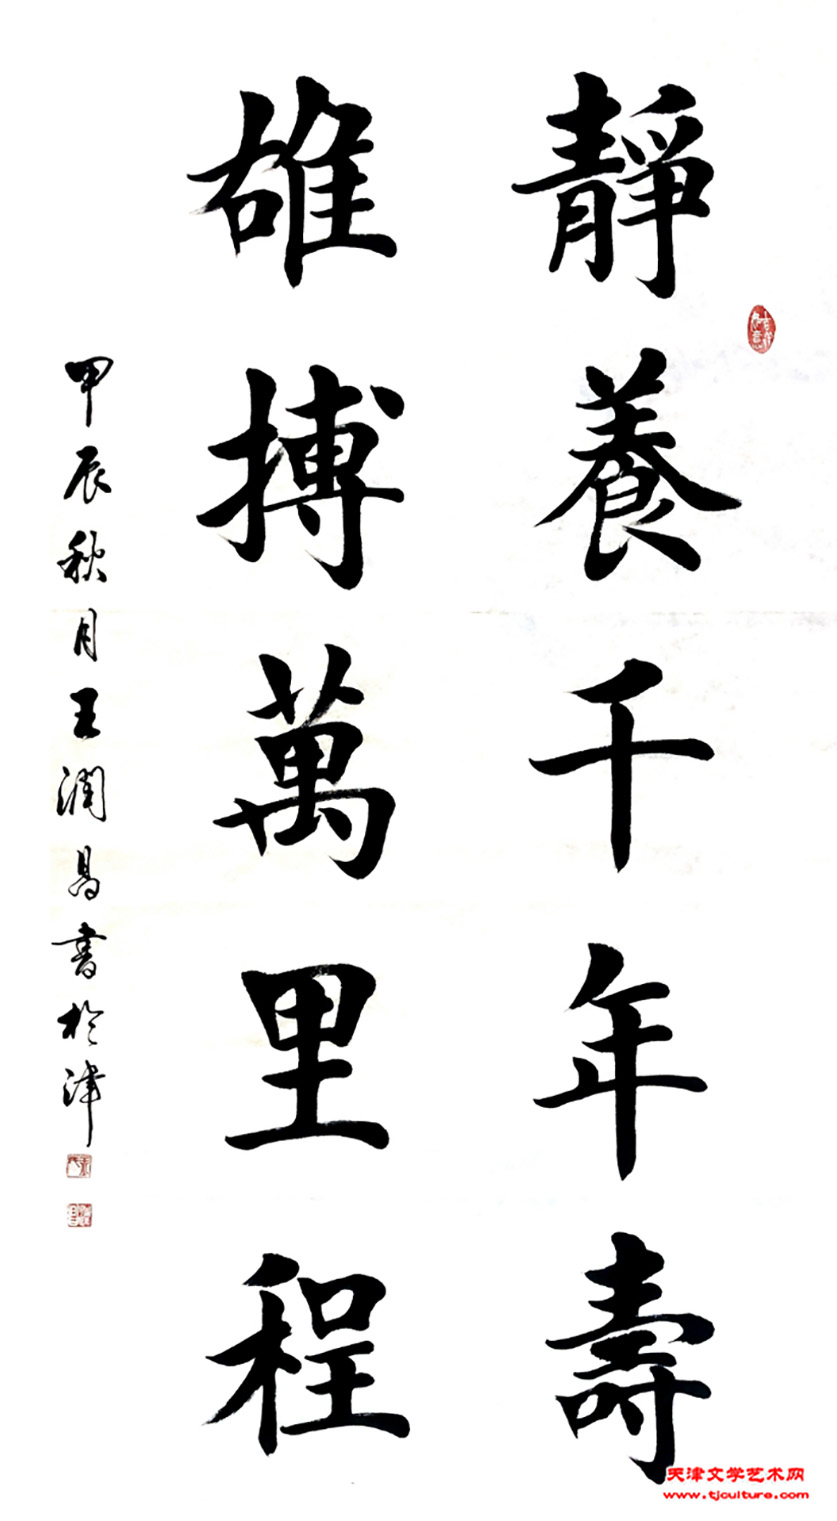 靜養千年壽
雄搏萬里程
甲辰秋月王潤昌書於津
天津文学艺术网
www.tjculture.com